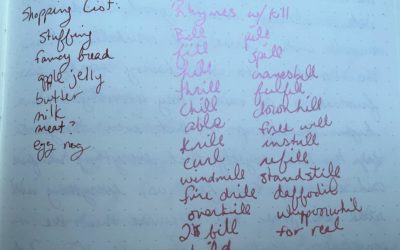 Shopping List:
stuffing
fancy bread
apple jelly
butter
milk
meat?
egg nog
Rhymes w/ kill
Bill
fill
thrill
chill
able
krill
curl
windmill
fire drill
overkill
2$ bill
pill
spill
fulfill
downhill
free will
install
refill
standstill
daffodil
whippoorwhil
for real